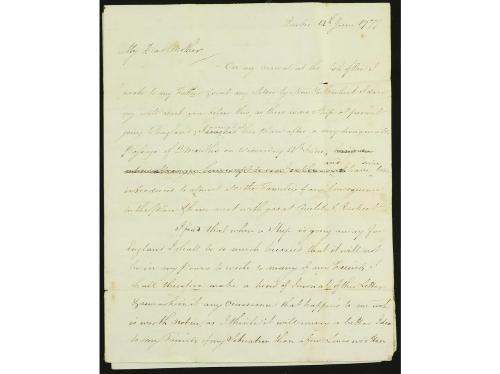 12th June 1777
My Dear Mother,
On my arrival at the I
wrote to my Father & sent my letter by
will reach you before this, as there was a Ship at present
going to England, I this Place after a very disagreeable
Passage of Months on Wednesday June,
and I have since been
introduced to almost all the Families of any consequence
in the Place & have met with great Civility
I find that when a Ship is going away for
England I shall be so much hurried that it will not
be in my power to write to many of my Friends I
shall therefore make a kind of Journal of this Letter
& mention it any occurrence that happens to me wh
is worth notice, as I think it will convey a better Idea
to my Friends of my Situation than a few Lines written